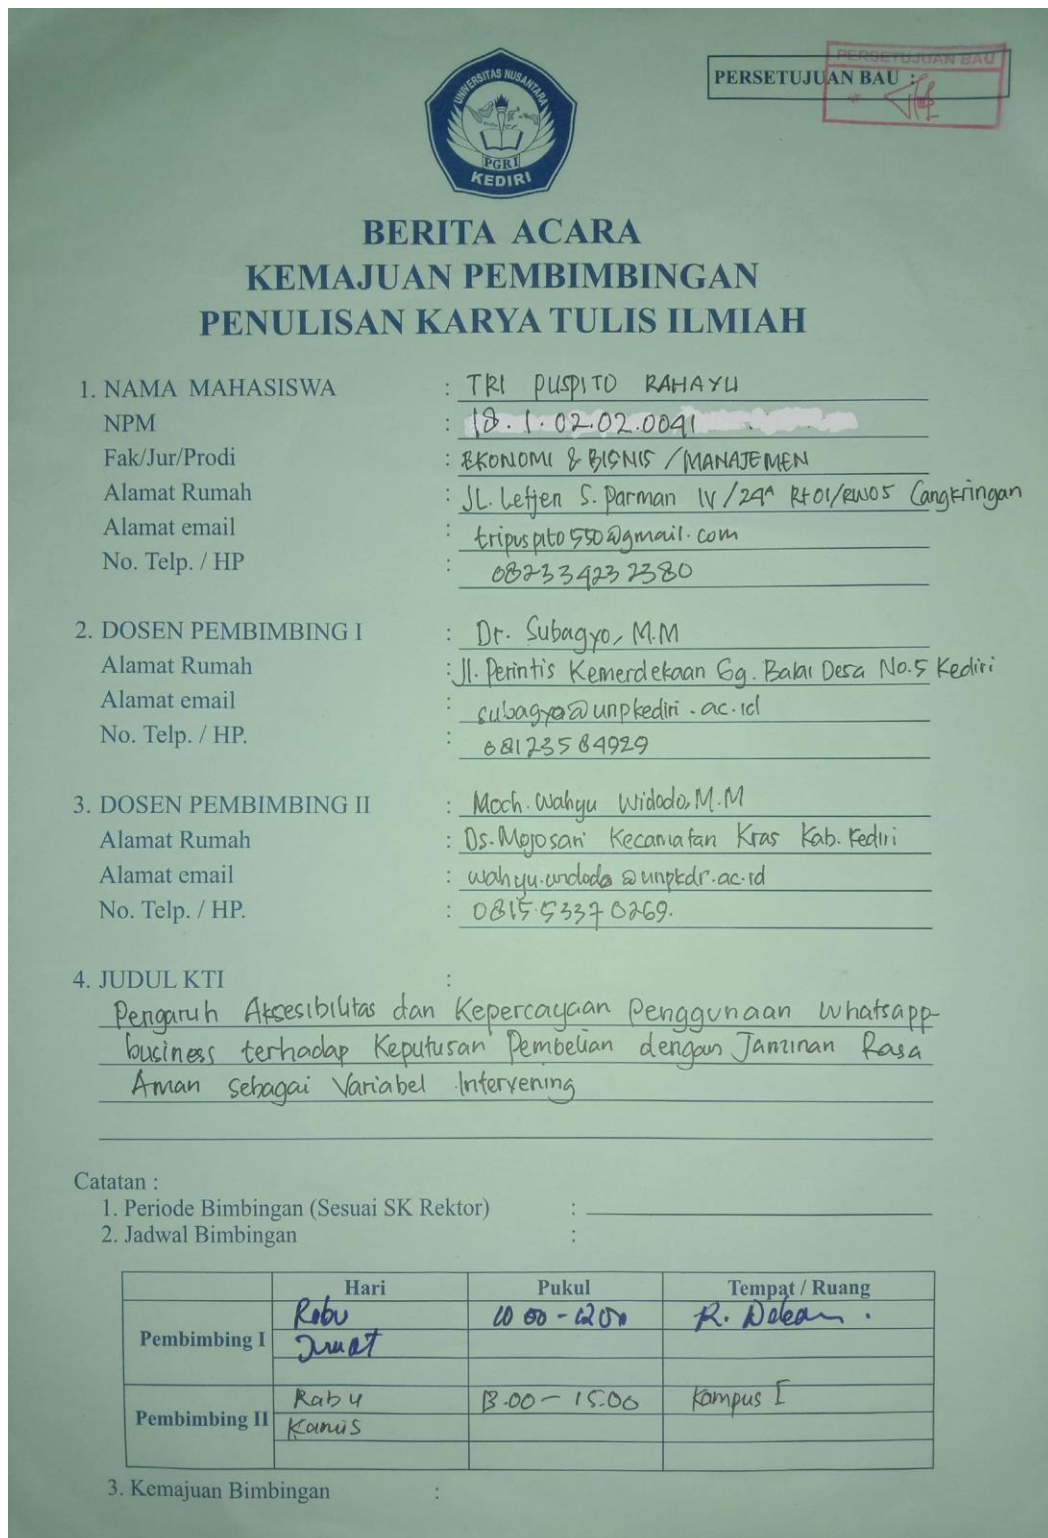 UNIVERSITAS NUSANTARA
PGRI
KEDIRI
PERSETUJUAN BAU
PERSETUJUAN BAU :
BERITA ACARA
KEMAJUAN PEMBIMBINGAN
PENULISAN KARYA TULIS ILMIAH
1. NAMA MAHASISWA : TRI PUSPITO RAHAYU
NPM : 18.1.02.02.0041
Fak/Jur/Prodi : EKONOMI & BISNIS / MANAJEMEN
Alamat Rumah : JL. Letjen S. Parman IV/24A Rt01/RW05 Cangkringan
Alamat email : tripuspito550@gmail.com
No. Telp. / HP : 082334232380
2. DOSEN PEMBIMBING I : Dr. Subagyo, M.M
Alamat Rumah : Jl. Perintis Kemerdekaan Gg. Balai Desa No.5 Kediri
Alamat email : subagyo@unpkediri.ac.id
No. Telp. / HP. : 08123584929
3. DOSEN PEMBIMBING II : Moch. Wahyu Widodo, M.M
Alamat Rumah : Ds. Mojosari Kecamatan Kras Kab. Kediri
Alamat email : wahyu.widodo@unpkdr.ac.id
No. Telp. / HP. : 0815.5337 0269.
4. JUDUL KTI :
Pengaruh Aksesibilitas dan Kepercayaan Penggunaan Whatsapp
business terhadap Keputusan Pembelian dengan Jaminan Rasa
Aman sebagai Variabel Intervening
Catatan :
1. Periode Bimbingan (Sesuai SK Rektor) :
2. Jadwal Bimbingan :
Hari Pukul Tempat / Ruang
Rabu 10 00 - 12 00 R. Dekan .
Pembimbing I
Jumat
Rabu 13.00 - 15.00 Kampus I
Pembimbing II
Kamis
3. Kemajuan Bimbingan :